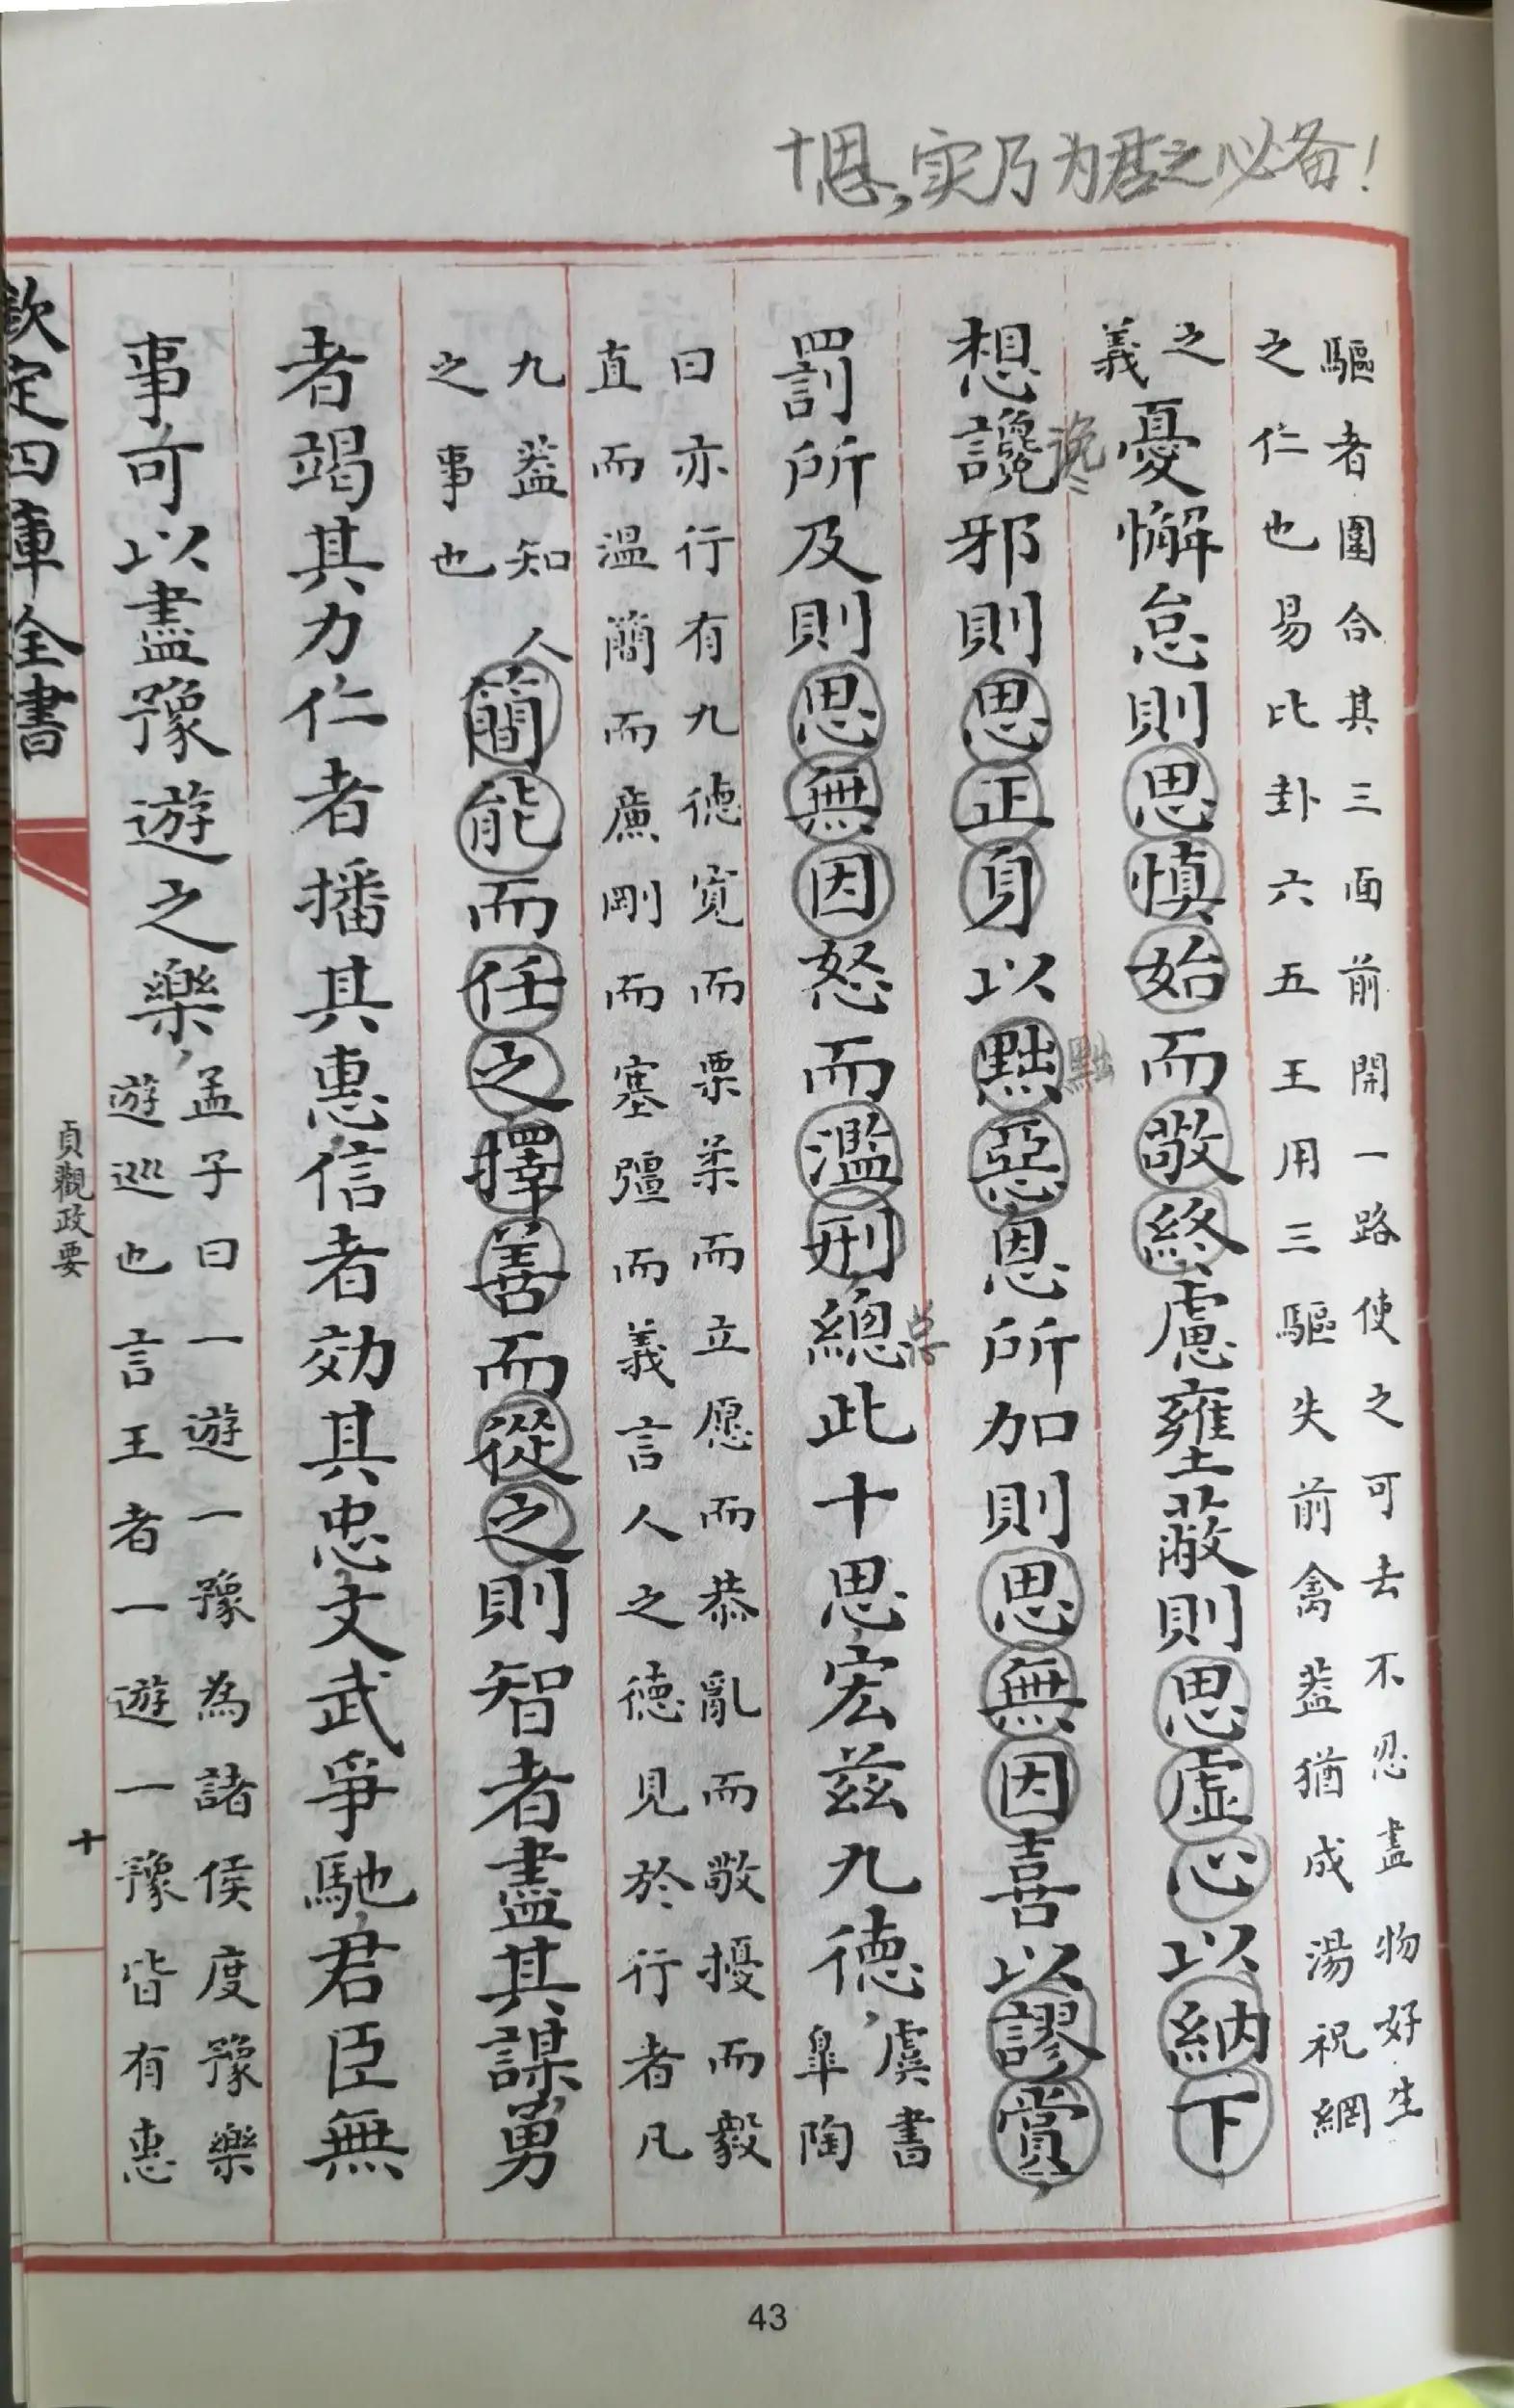 十思，实乃为君之必备！
驅者圍合其三面前開一路使之可去不忍盡物好生
之仁也易比卦六五王用三驅失前禽葢猶成湯祝網
之
義
憂懈怠則思慎始而敬終慮壅蔽則思虛心以納下
想讒邪則思正身以黜惡恩所加則思無因喜以謬賞
罰所及則思無因怒而濫刑總此十思宏兹九德
总
虞書
皐陶
曰亦行有九德寛而栗柔而立愿而恭亂而敬擾而毅
直而溫簡而廉剛而塞彊而義言人之德見於行者凡
九葢知人
之事也
簡能而任之擇善而從之則智者盡其謀勇
者竭其力仁者播其惠信者効其忠文武爭馳君臣無
事可以盡豫遊之樂
孟子曰一遊一豫為諸侯度豫樂
遊巡也言王者一遊一豫皆有恵
欽定四庫全書
貞觀政要
十
43